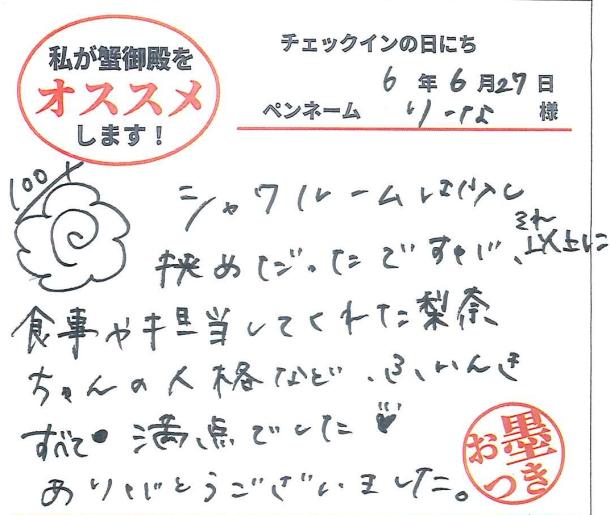 私が蟹御殿を
オススメ
します！
チェックインの日にち
6年6月27日
ペンネーム りーな 様
100点
シャワールームは少し
挟めだったですが、それ以上に
食事や担当してくれた梨奈
ちゃんの人格など、ふいんき
すべて満点でした
ありがとうございました。
お墨つき